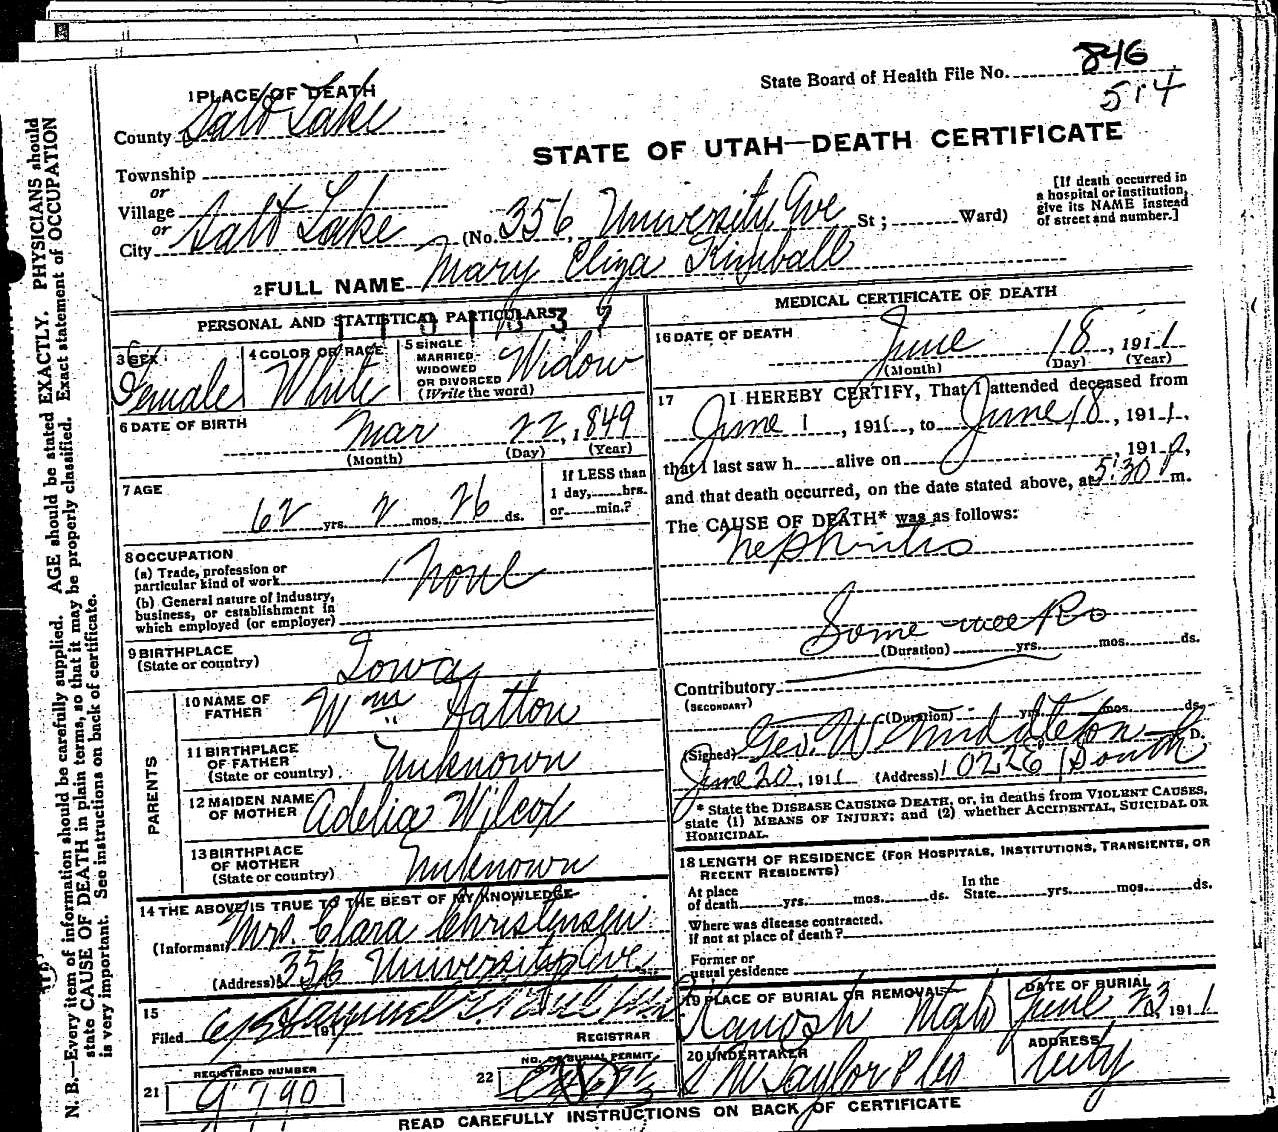 State Board of Health File No. 846
514
1 PLACE OF DEATH
County Salt Lake
STATE OF UTAH—DEATH CERTIFICATE
Township
or
Village
or
City Salt Lake (No. 356, University Ave St; Ward)
[If death occurred in a hospital or institution, give its NAME instead of street and number.]
2 FULL NAME Mary Eliza Kimball
PERSONAL AND STATISTICAL PARTICULARS
3 SEX Female
4 COLOR OR RACE White
5 SINGLE MARRIED WIDOWED OR DIVORCED (Write the word) Widow
6 DATE OF BIRTH Mar 22, 1849
(Month) (Day) (Year)
7 AGE 62 yrs. 2 mos. 26 ds.
If LESS than 1 day, hrs. or min.?
8 OCCUPATION
(a) Trade, profession or particular kind of work None
(b) General nature of industry, business, or establishment in which employed (or employer)
9 BIRTHPLACE (State or country) Iowa
PARENTS
10 NAME OF FATHER Wm Hatton
11 BIRTHPLACE OF FATHER (State or country) Unknown
12 MAIDEN NAME OF MOTHER Adelia Wilcox
13 BIRTHPLACE OF MOTHER (State or country) Unknown
14 THE ABOVE IS TRUE TO THE BEST OF MY KNOWLEDGE
(Informant) Mrs. Clara Christensen
(Address) 356 University Ave
15
Filed 191 REGISTRAR
21 REGISTERED NUMBER 9790
22 NO. OF BURIAL PERMIT
MEDICAL CERTIFICATE OF DEATH
16 DATE OF DEATH June 18, 1911
(Month) (Day) (Year)
17 I HEREBY CERTIFY, That I attended deceased from
June 1, 1911, to June 18, 1911,
that I last saw h alive on , 191 ,
and that death occurred, on the date stated above, at 5:30 P m.
The CAUSE OF DEATH* was as follows:
Nephritis
Some weeks
(Duration) yrs. mos. ds.
Contributory
(SECONDARY)
(Duration) yrs. mos. ds.
(Signed) Geo. W Middleton D.
June 20, 1911 (Address) 1022 E 1 South
* State the DISEASE CAUSING DEATH, or, in deaths from VIOLENT CAUSES, state (1) MEANS OF INJURY; and (2) whether ACCIDENTAL, SUICIDAL OR HOMICIDAL.
18 LENGTH OF RESIDENCE (FOR HOSPITALS, INSTITUTIONS, TRANSIENTS, OR RECENT RESIDENTS)
At place of death yrs. mos. ds. In the State yrs. mos. ds.
Where was disease contracted. If not at place of death?
Former or usual residence
19 PLACE OF BURIAL OR REMOVAL Kanosh Utah
DATE OF BURIAL June 23, 1911
20 UNDERTAKER S M Taylor & Co
ADDRESS City
READ CAREFULLY INSTRUCTIONS ON BACK OF CERTIFICATE
N. B.—Every item of information should be carefully supplied. AGE should be stated EXACTLY. PHYSICIANS should
state CAUSE OF DEATH in plain terms, so that it may be properly classified. Exact statement of OCCUPATION
is very important. See instructions on back of certificate.